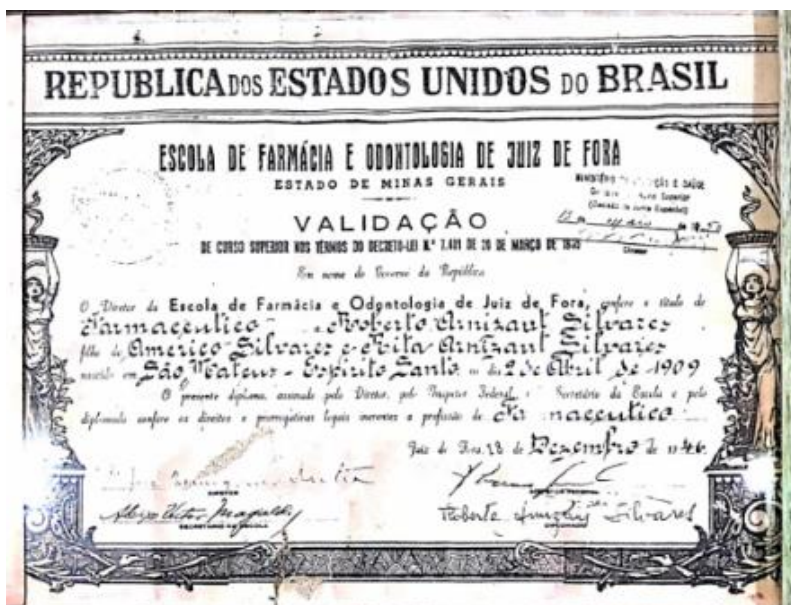 REPUBLICA DOS ESTADOS UNIDOS DO BRASIL
ESCOLA DE FARMÁCIA E ODONTOLOGIA DE JUIZ DE FORA
ESTADO DE MINAS GERAIS
VALIDAÇÃO
DE CURSO SUPERIOR NOS TÊRMOS DO DECRETO-LEI N.º 7.401 DE 20 DE MARÇO DE
Em nome do Governo da República
O Diretor da Escola de Farmácia e Odontologia de Juiz de Fora, confere o título de
Farmaceutico a Roberto Arnizaut Silvares
filho de Americo Silvares e Rita Arnizaut Silvares
nascido em São Mateus - Espirito Santo em dia 2 de Abril de 1909
O presente diploma, assinado pelo Diretor, pelo Inspetor Federal, Secretário da Escola e pelo
diplomado confere os direitos e prerrogativas legais inerentes a profissão de Farmaceutico
Juiz de Fora, 18 de Dezembro de 1946.
DIRETOR
SECRETARIO DA ESCOLA
Roberto Silvares
DIPLOMADO